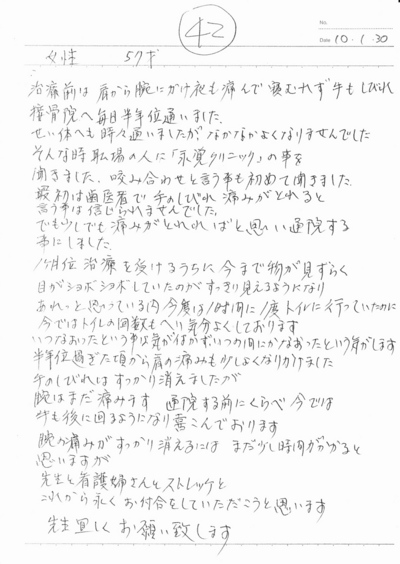 42
No.
Date 10・1・30
女性 57才
治療前は肩から腕にかけ夜も痛んで寝むれず手もしびれ
接骨院へ毎日半年位通いました。
せい体へも時々通いましたが、なかなかよくなりませんでした
そんな時職場の人に「永覚クリニック」の事を
聞きました。咬み合わせと言う事も初めて聞きました。
最初は歯医者で手のしびれ痛みがとれると
言う事は信じられませんでした。
でも少しでも痛みがとれればと思い通院する
事にしました。
1ヶ月位治療を受けるうちに今まで物が見ずらく
目がショボショボしていたのがすっきり見えるようになり
あれっと思っている内今度は1時間に1度トイレに行っていたのに
今ではトイレの回数もへり気分よくしております
いつなおったという事は気が付かずいつの間にかなおったという気がします
半年位過ぎた頃から肩の痛みも少しよくなりかけました
手のしびれはすっかり消えましたが
腕はまだ痛みます 通院する前にくらべ今では
手も後に回るようになり喜こんでおります
腕の痛みがすっかり消えるにはまだ少し時間がかかると
思いますが
先生と看護婦さんとストレッチと
これから永くお付合をしていただこうと思います
先生宜しくお願い致します